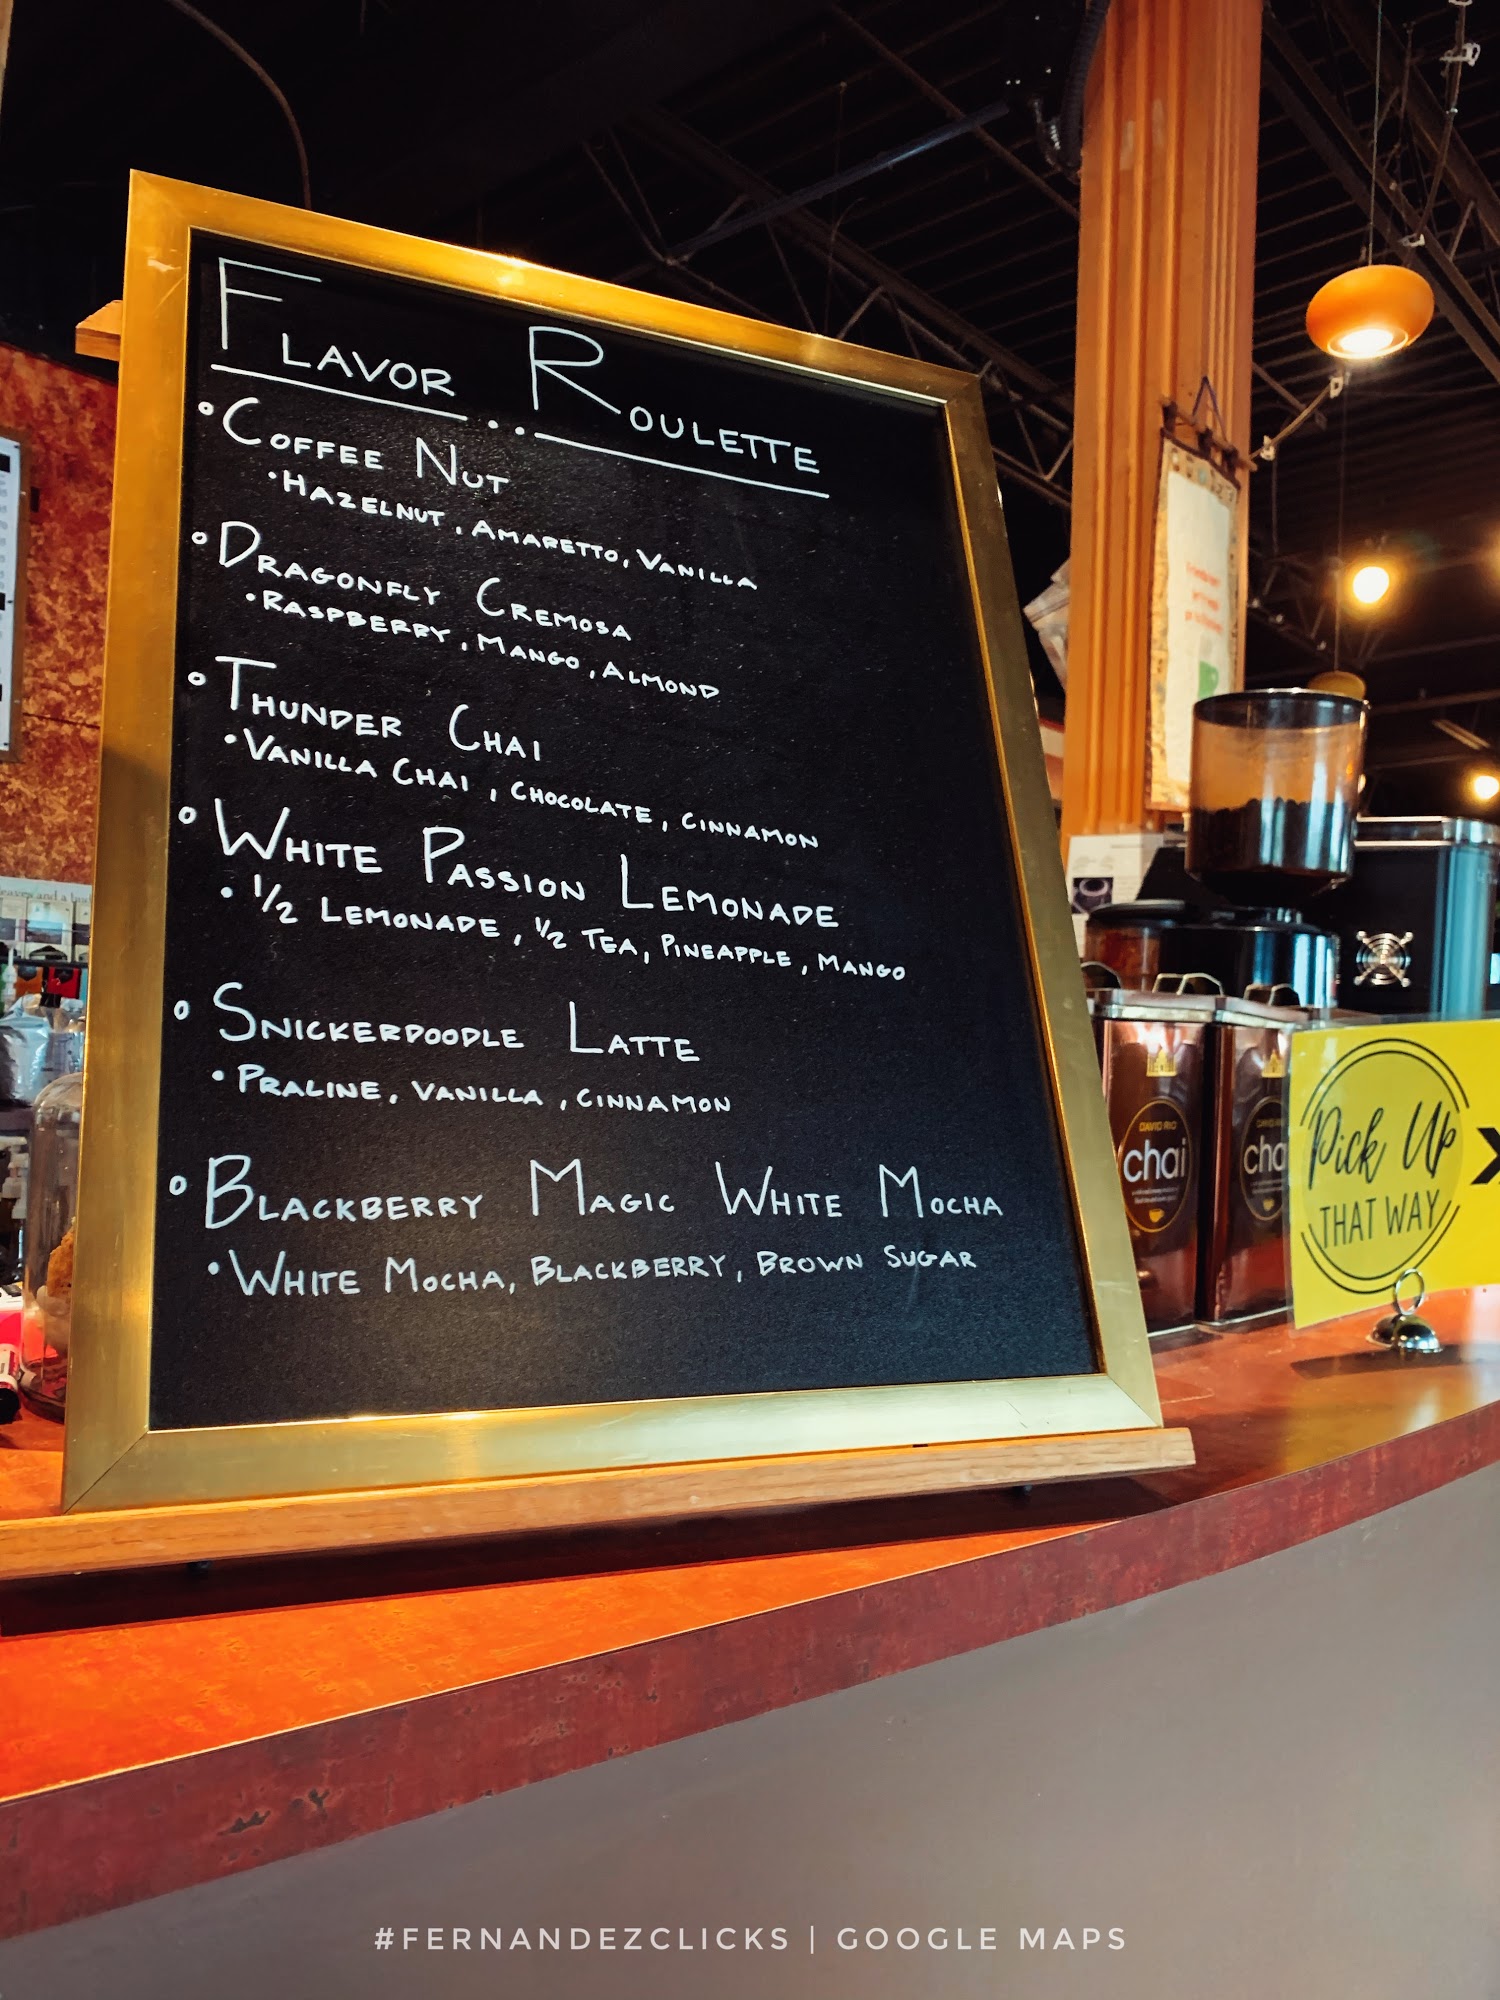 FLAVOR ROULETTE
COFFEE NUT
HAZELNUT, AMARETTO, VANILLA
DRAGONFLY CREMOSA
RASPBERRY, MANGO, ALMOND
THUNDER CHAI
VANILLA CHAI, CHOCOLATE, CINNAMON
WHITE PASSION LEMONADE
1/2 LEMONADE, 1/2 TEA, PINEAPPLE, MANGO
SNICKERDOODLE LATTE
PRALINE, VANILLA, CINNAMON
BLACKBERRY MAGIC WHITE MOCHA
WHITE MOCHA, BLACKBERRY, BROWN SUGAR
DAVID RIO
chai
DAVID RIO
cha
Pick Up
THAT WAY
#FERNANDEZCLICKS | GOOGLE MAPS